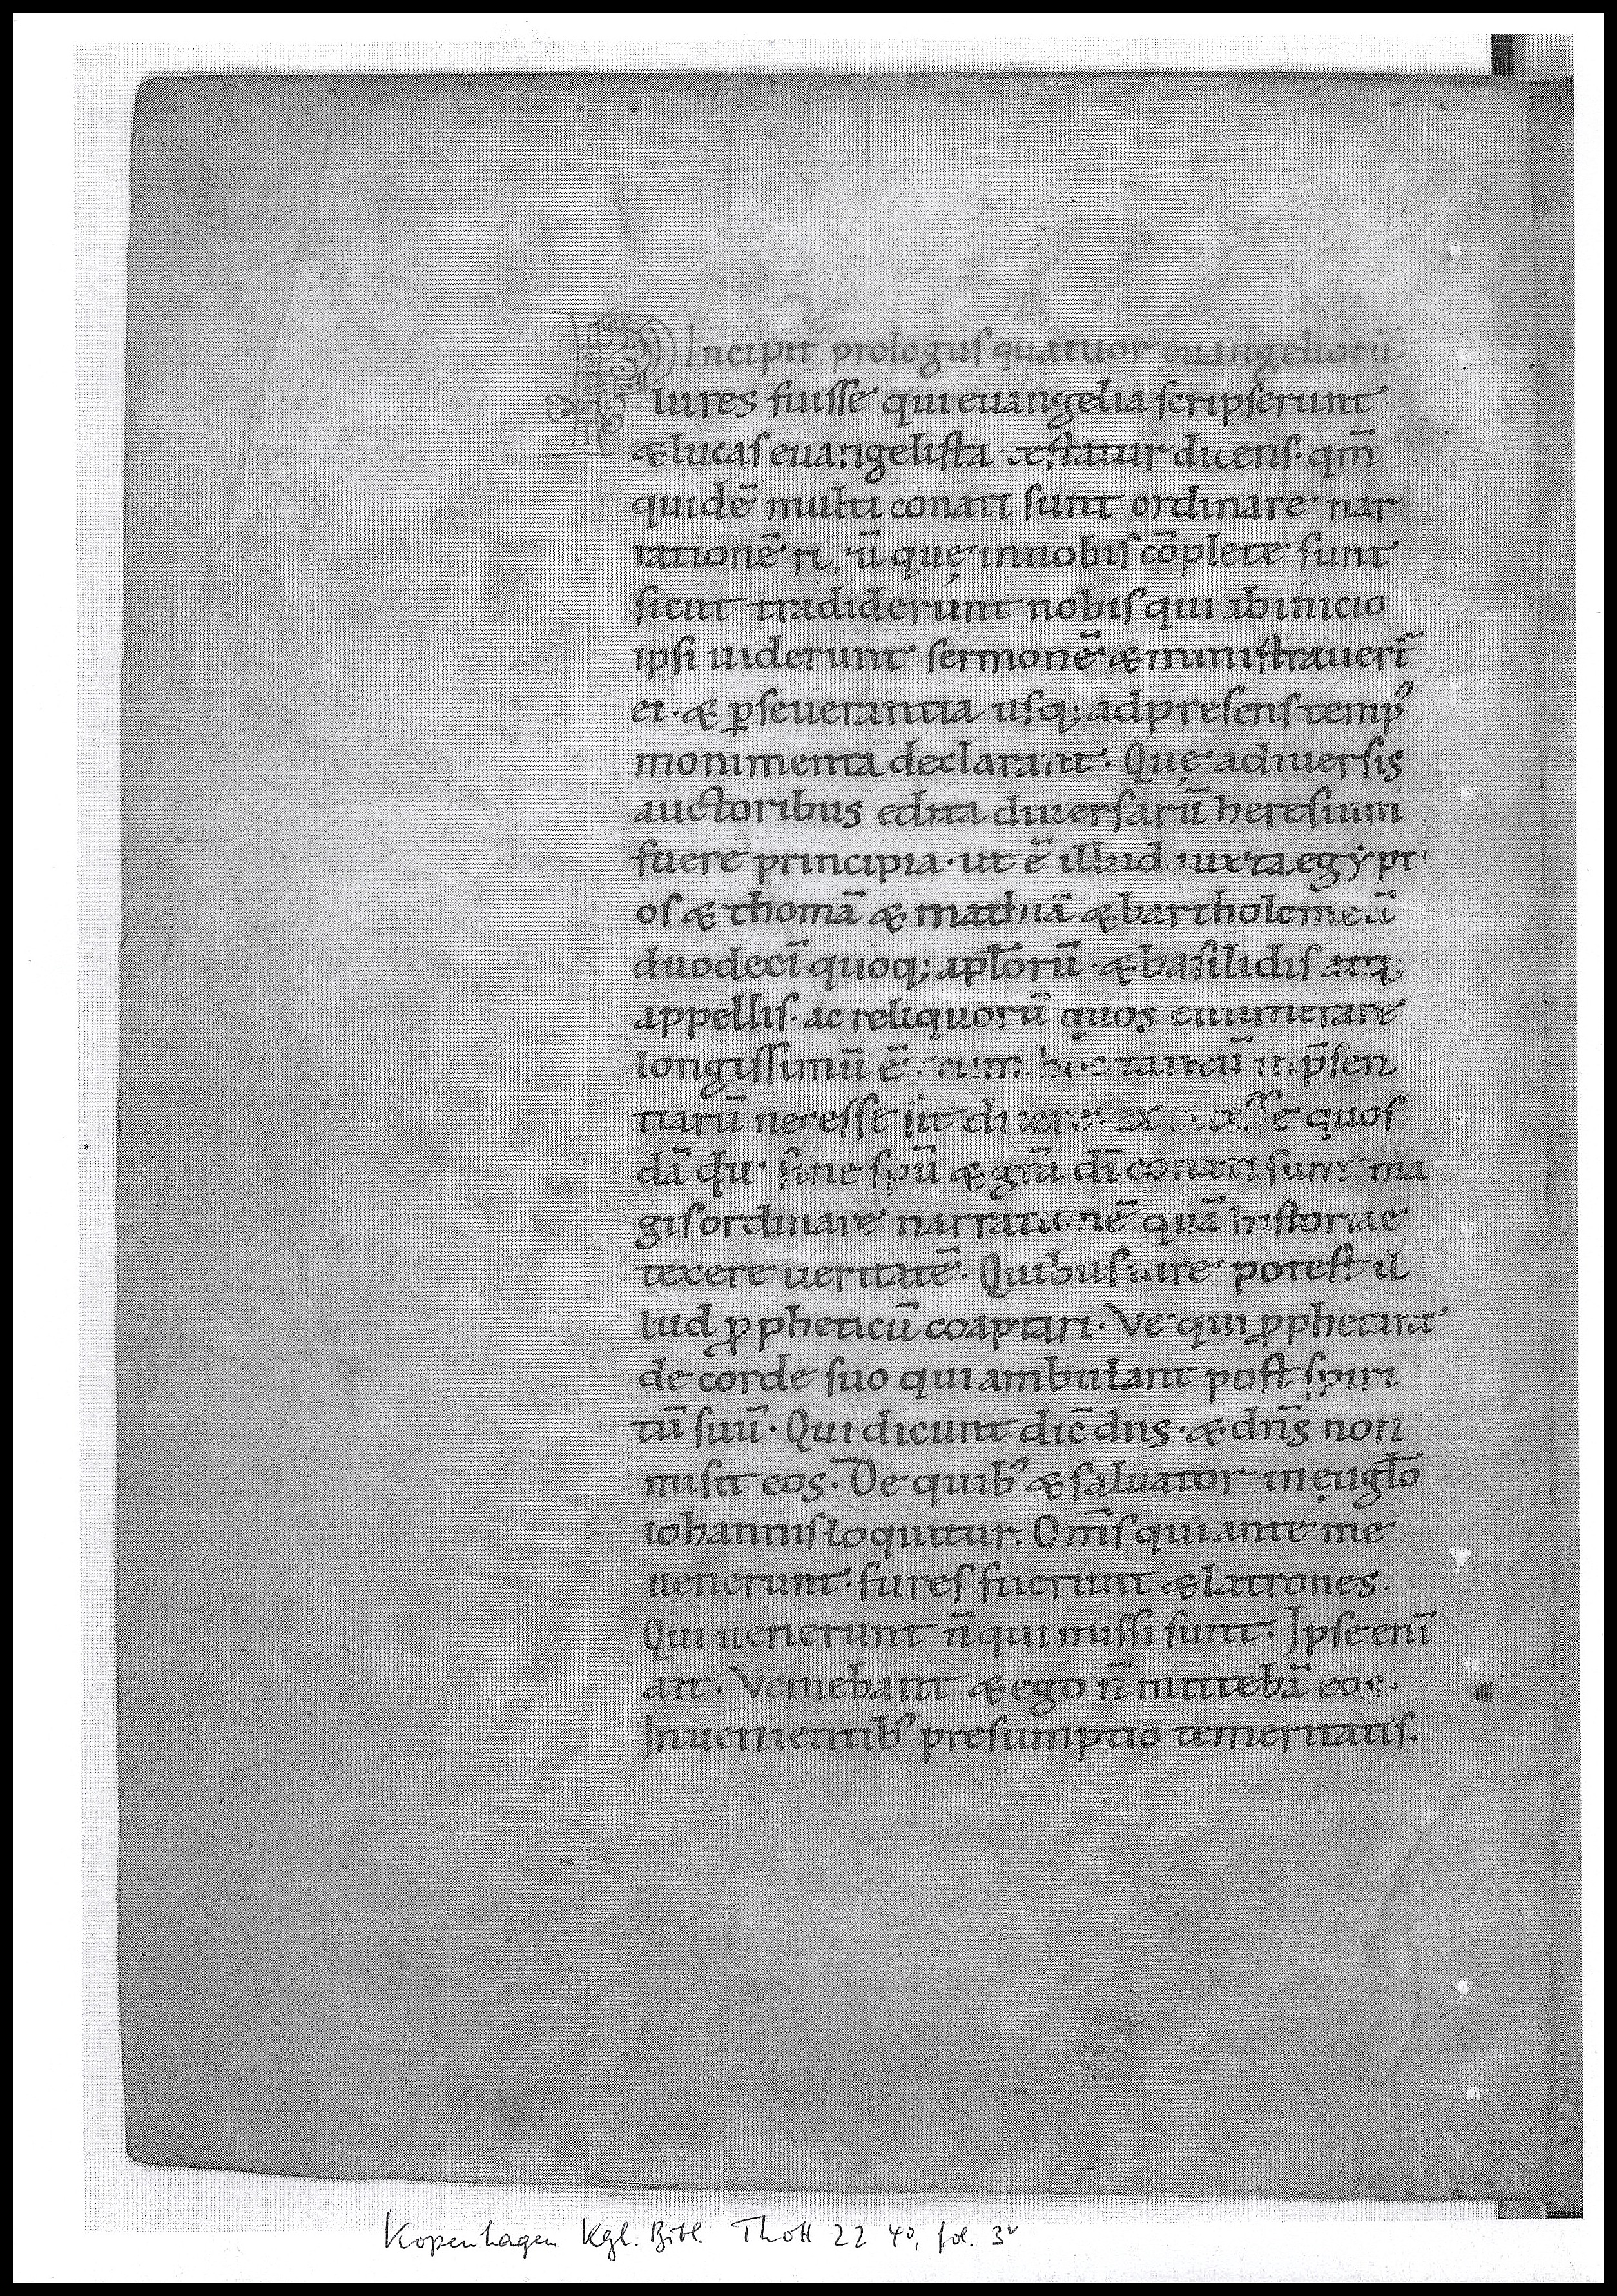 Incipit prologus quatuor euangeliorū.
Plures fuisse qui euangelia scripserunt
& lucas euangelista testatur dicens. qm̄
quidē multi conati sunt ordinare nar
rationē rerū quę in nobis cōplete sunt
sicut tradiderunt nobis qui ab inicio
ipsi uiderunt sermonē & ministrauert̄
ei. & ꝑseuerantia usq; ad presens temp᾿
monimenta declarant. Quę a diuersis
auctoribus edita diuersarū heresium
fuere principia. ut ē illud iuxta egypti
os & thomā & mathiā & bartholomeū
duodecī quoq; apl̄orū. & basilidis atq;
appellis. ac reliquorū quos enumerare
longissimū ē. cum hoc tantū in p̄sen
tiarū necesse sit dicere. exstitisse quos
dā qui sine spū & gr̄a dī conati sunt ma
gis ordinare narrationē quā historiae
texere ueritatē. Quibus iure potest il
lud ꝓpheticū coaptari. Ve qui ꝓphetant
de corde suo qui ambulant post spiri
tū suū. Qui dicunt dic̄ dns. & dn̄s non
misit eos. De quib᾿ & saluator in eugl̄o
iohannis loquitur. Om̄s qui ante me
uenerunt fures fuerunt & latrones.
Qui uenerunt n̄ qui missi sunt. Ipse enī
ait. Veniebant & ego n̄ mittebā eos.
In uenientib᾿ presumptio temeritatis.
Kopenhagen Kgl. Bibl. Thott 22 4°, fol. 3v